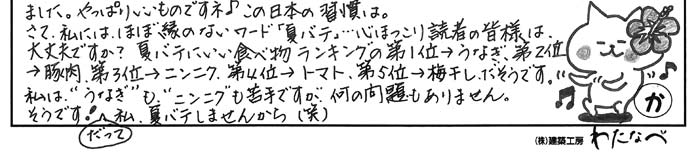 ました。やっぱりいいものですネ♪この日本の習慣は。
さて、私には、ほぼ縁のないワード「夏バテ」…心ほっこり読者の皆様は、
大丈夫ですか？夏バテにいい食べ物ランキングの第1位→うなぎ、第2位
→豚肉、第3位→ニンニク、第4位→トマト、第5位→梅干し、だそうです。
私は、“うなぎ”も“ニンニク”も苦手ですが、何の問題もありません。
そうです！私、夏バテしませんから（笑）
だって
か
(株)建築工房 わたなべ